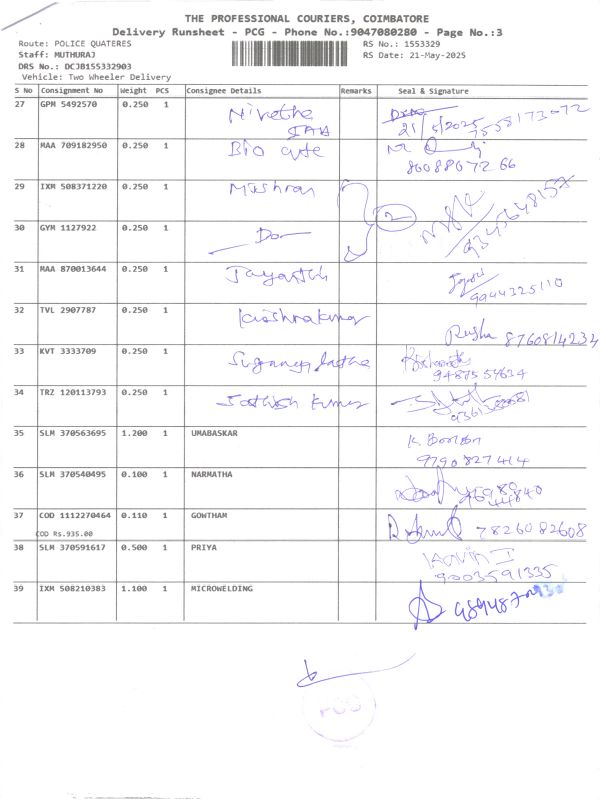 THE PROFESSIONAL COURIERS, COIMBATORE
Delivery Runsheet - PCG - Phone No.:9047080280 - Page No.:3
Route: POLICE QUATERES RS No.: 1553329
Staff: MUTHURAJ RS Date: 21-May-2025
DRS No.: DCJB155332903
Vehicle: Two Wheeler Delivery
S No Consignment No Weight PCS Consignee Details Remarks Seal & Signature
27 GPM 5492570 0.250 1 Nivetha
21/5/2025
28 MAA 709182950 0.250 1 Bio cute
29 IXM 508371220 0.250 1 2
9345648157
30 GYM 1127922 0.250 1 Do
31 MAA 870013644 0.250 1 Jayanthi
9944325110
32 TVL 2907787 0.250 1 Krishnakumar
8760814234
33 KVT 3333709 0.250 1
34 TRZ 120113793 0.250 1 Sathish Kumar
35 SLM 370563695 1.200 1 UMABASKAR
9790827414
36 SLM 370540495 0.100 1 NARMATHA
37 COD 1112270464 0.110 1 GOWTHAM 7826082608
COD Rs.935.00
38 SLM 370591617 0.500 1 PRIYA Kavin I
9003591335
39 IXM 508210383 1.100 1 MICROWELDING